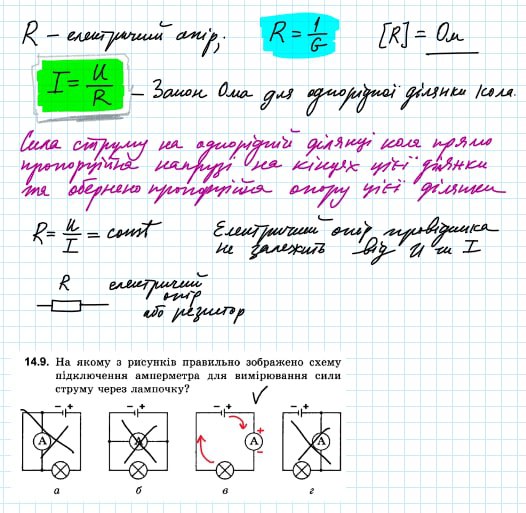 R – електричний опір; R = 1/G [R] = Ом
I = U/R – Закон Ома для однорідної ділянки кола.
Сила струму на однорідній ділянці кола прямо
пропорційна напрузі на кінцях цієї ділянки
та обернено пропорційна опору цієї ділянки
R = U/I = const Електричний опір провідника
не залежить від U та I
R електричний
опір
або резистор
14.9. На якому з рисунків правильно зображено схему
підключення амперметра для вимірювання сили
струму через лампочку?
– + – + – + – +
A A A + A
–
а б в г